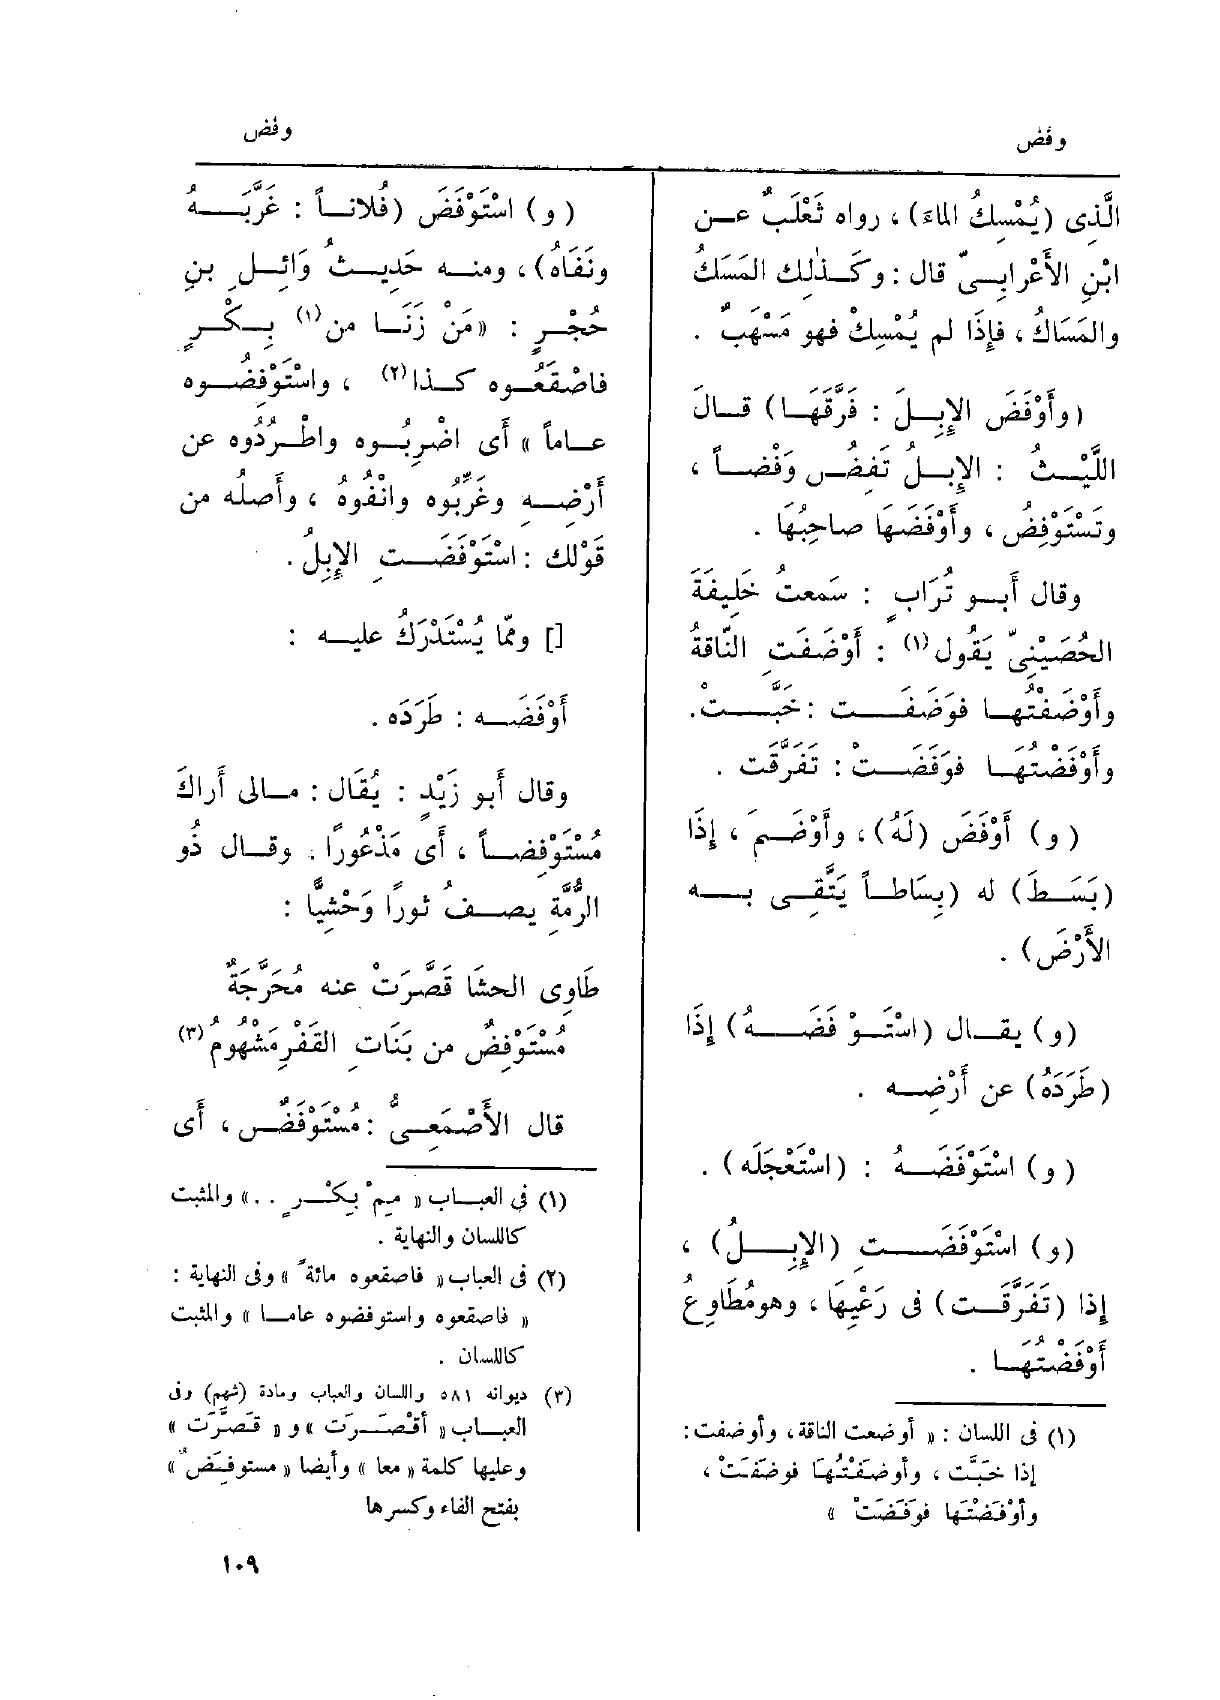 وفض
وفض
الَّذِى (يُمْسِكُ الماءَ) ، رواه ثَعْلَبٌ عـن
ابْنِ الأَعْرابِـىّ قال : وكَـذٰلِك المَسَكُ
والمَسَاكُ ، فإِذَا لم يُمْسِكْ فهو مَسْهَبٌ .
(وأَوْفَضَ الإِبِـلَ : فَرَّقَهَـا) قـالَ
اللَّيْـثُ : الإِبِـلُ تَفِضُ وَفْضـاً ،
وتَسْتَوْفِضُ ، وأَوْفَضَهَا صاحِبُهَا .
وقال أَبـو تُرَابٍ : سَمعتُ خَلِيفَةَ
الحُصَيْنِىّ يَقُول (١) : أَوْضَفَتِ النّاقةُ
وأَوْضَفْتُهـا فوَضَفَـت : خَبَّـتْ.
وأَوْفَضْتُهَـا فوَفَضَـتْ : تَفَرَّقَت .
(و) أَوْفَضَ (لَهُ) ، وأَوْضَـمَ ، إِذَا
(بَسَـطَ) له (بِسَاطـاً يَتَّقِـى بـه
الأَرْضَ) .
(و) يقـال (اسْتَـوْفَضَـهُ) إِذَا
(طَرَدَهُ) عن أَرْضِـه .
(و) اسْتَوْفَضَـهُ : (اسْتَعْجَلَه) .
(و) اسْتَوْفَضَـتِ (الإِبِـلُ) ،
إِذا (تَفَرَّقَـت) فى رَعْيِهَا ، وهو مُطَاوِعُ
أَوْفَضْتُهَـا .
(١) فى اللسان : « أوضعت الناقة ، وأوضفت :
إذا خَبَّت ، وأوضَفْتُهَا فوضَفَتْ ،
وأوْفَضْتَها فوَفَضَتْ »
(و) اسْتَوْفَضَ (فُلانـاً : غَرَّبَـهُ
ونَفَاهُ) ، ومنـه حَدِيـثُ وَائِـلِ بنِ
حُجْرٍ : « مَنْ زَنَـا من (١) بِـكْـرٍ
فاصْقَعُـوه كـذا (٢) ، واسْتَوْفِضُـوه
عـاماً » أَى اضْرِبُـوه واطْـرُدُوه عن
أَرْضِـه وغَرِّبُوه وانْفُوهُ ، وأَصلُه من
قَوْلك : اسْتَوْفَضَـتِ الإِبِلُ .
[] وممّا يُسْتَدْرَكُ عليـه :
أَوْفَضَـه : طَرَدَه .
وقال أَبو زَيْدٍ : يُقَال : مـالِى أَراكَ
مُسْتَوْفِضـاً ، أَى مَذْعُوراً . وقـال ذُو
الرُّمَّةِ يصـفُ ثوراً وَحْشِيًّا :
طَاوِى الحشَا قَصَّرَتْ عنه مُحَرَّجَةٌ
مُسْتَوْفِضٌ من بَنَاتِ القَفْرِ مَشْهُومُ (٣)
قال الأَصْمَعِـىُّ : مُسْتَوْفَضٌ ، أَى
(١) فى العبـاب « مِمْ بِكْـرٍ . . » والمثبت
كاللسان والنهاية .
(٢) فى العباب « فاصقعوه مائة ً » وفى النهاية :
« فاصقعوه واستوفضوه عامـا » والمثبت
كاللسان .
(٣) ديوانه ٥٨١ واللسان والعباب ومادة (شهم) وفى
العبـاب « أقْصَـرَت » و « قَصَّرَت »
وعليها كلمة « معا » وأيضا « مستوفِـَضٌ »
بفتح الفاء وكسرها
١٠٩